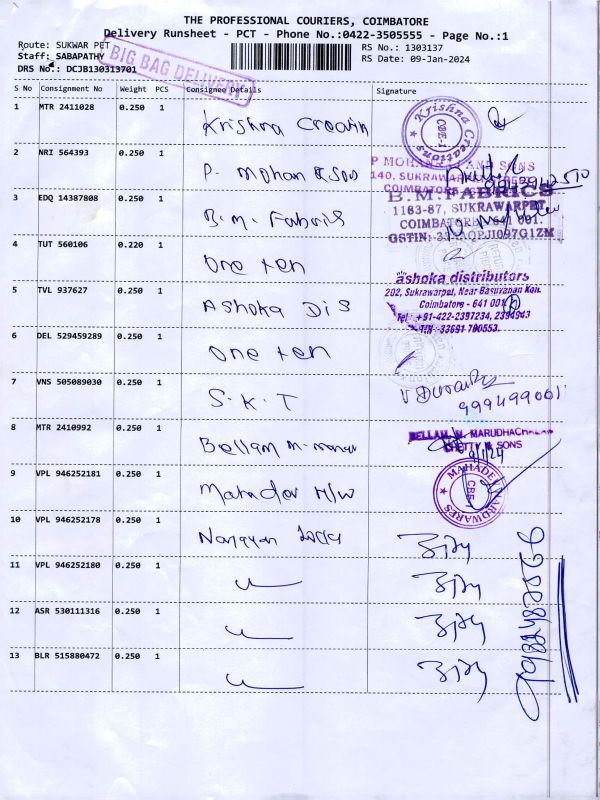 THE PROFESSIONAL COURIERS, COIMBATORE
Delivery Runsheet - PCT - Phone No.:0422-3505555 - Page No.:1
Route: SUKWAR PET
RS No.: 1303137
Staff: SABAPATHY
RS Date: 09-Jan-2024
DRS No.: DCJB130313701
BIG BAG DELIVERY
S No Consignment No Weight PCS Consignee Details Signature
1 MTR 2411028 0.250 1 Krishna Creation
Krishna Creations CBE-1
2 NRI 564393 0.250 1 P. Mohan & Sons
P MOHAN AND SONS
140, SUKRAWAR
COIMBATORE
9942942510
3 EDQ 14387808 0.250 1 B.M. Fabris
B.M.FABRICS
1183-87, SUKRAWARPET,
COIMBATORE 641 001.
4 TUT 560106 0.220 1 One ten
5 TVL 937627 0.250 1 Ashoka Dis
ashoka distributors
202, Sukrawarpet, Near Basuvanan Koil,
Coimbatore - 641 001
Tel : +91-422-2397234, 2394943
TIN : 33691 700553.
6 DEL 529459289 0.250 1 One ten
7 VNS 505089030 0.250 1 S.K.T
8 MTR 2410992 0.250 1 Bellam M.
BELLAM. M. MARUDHACHALAM
CHETTY & SONS
9/1/24
9 VPL 946252181 0.250 1 Mahadev H/W
MAHADEV HARDWARES CBE-1
10 VPL 946252178 0.250 1 Narayan
11 VPL 946252180 0.250 1
12 ASR 530111316 0.250 1
13 BLR 515880472 0.250 1